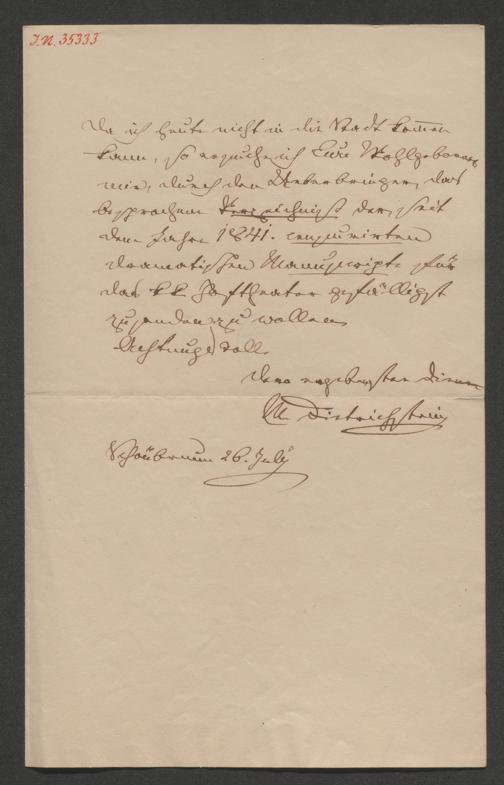 J.N. 35333
Da ich heute nicht in die Stadt kom̅en
kann, so ersuche ich Eure Wohlgeboren
mir, durch den Ueberbringer, das
besprochene Verzeichniß der, seit
dem Jahre 1841. censurirten
dramatischen Manuscripte für
das kk Hoftheater gefälligst
zusenden zu wollen
Achtungsvoll
Dero ergebenster Diener
M Dietrichstein
Schönbrunn 26. July